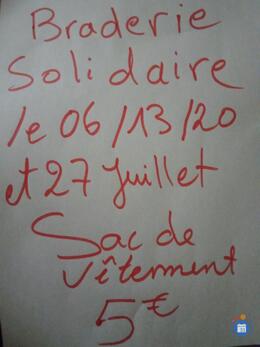 Braderie
Solidaire
le 06/13/20
et 27 Juillet
Sac de
Vêtement
5€